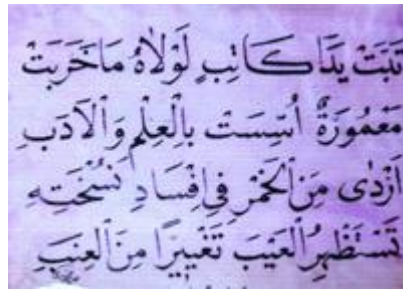 تَبَّتْ يَدَا كَاتِبٍ لَوْلَاهُ مَا خَرَبَتْ
مَعْمُورَةٌ اُسِّسَتْ بِالْعِلْمِ وَالْاَدَبِ
اَرْدٰى مِنَ الْخَمْرِ فِي اِفْسَادِ نُسْخَتِهِ
تَسْتَظْهِرُ الْعَيْبَ تَغْيِيرًا مِنَ الْعِنَبِ